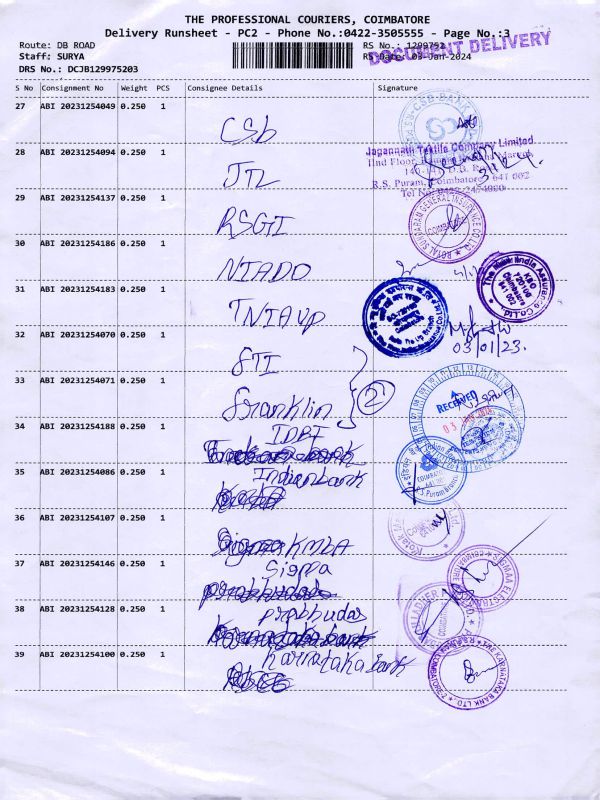 THE PROFESSIONAL COURIERS, COIMBATORE
Delivery Runsheet - PC2 - Phone No.:0422-3505555 - Page No.:3
Route: DB ROAD RS No.: 1299752
Staff: SURYA RS Date: 03-Jan-2024
DOCUMENT DELIVERY
DRS No.: DCJB129975203
S No Consignment No Weight PCS Consignee Details Signature
27 ABI 20231254049 0.250 1
CSb
28 ABI 20231254094 0.250 1
JTL
Jagannath Textile Company Limited
R.S. Puram, Coimbatore - 641 002
29 ABI 20231254137 0.250 1
RSGI
ROYAL SUNDARAM GENERAL INSURANCE CO LTD
30 ABI 20231254186 0.250 1
NIADO
The New India Assurance Co Ltd.
31 ABI 20231254183 0.250 1
TNIAUP
03/01/23.
32 ABI 20231254070 0.250 1
STI
33 ABI 20231254071 0.250 1
Franklin
2
RECEIVED
34 ABI 20231254188 0.250 1
IDBI
35 ABI 20231254086 0.250 1
Indianbank
R.S. Puram Branch
36 ABI 20231254107 0.250 1
KMBA
37 ABI 20231254146 0.250 1
Sigma
38 ABI 20231254128 0.250 1
prabhudas
39 ABI 20231254100 0.250 1
Karnataka bank
THE KARNATAKA BANK LTD.